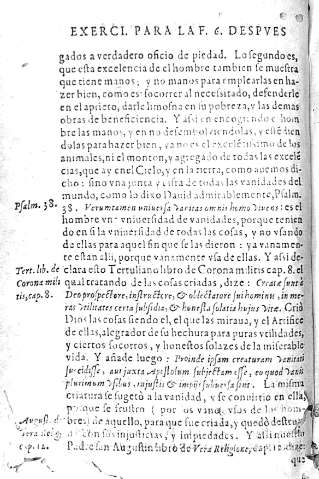 EXERCI. PARA LA F. 6. DESPVES
gados a verdadero oficio de piedad. Lo segundo es,
que esta excelencia de el hombre tambien se muestra
que tiene manos; y no manos para emplearlas en ha
zer bien, como es socorrer al necessitado, defenderle
en el aprieto, darle limosna en su pobreza, y las demas
obras de beneficiencia. Y assi en encogiendo el hom
bre las manos, y en no desembolviendolas, y estédien
dolas para hazer bien, ya no es el excelétissimo de los
animales, ni el monton, y agregado de todas las excelé
cias, que ay en el Cielo, y en la tierra, como avemos di
cho: sino vna junta y cifra de todas las vanidades del
mundo, como lo dixo David admirablemente, Psalm.
Psalm. 38.
38. Verumtamen universa vanitas omnis homo vivens: es el
hombre vna vniversidad de vanidades, porque tenien
do en si la vniversidad de todas las cosas, y no vsando
de ellas para aquel fin que se las dieron: ya vanamen-
te estan alli, porque vanamente vsa de ellas. Y assi de-
Tert. lib. de
Corona mili
tis, cap. 8.
clara esto Tertuliano libro de Corona militis cap. 8. el
qual tratando de las cosas criadas, dize: Creata sunt à
Deo prospectore, instructore, & oblectatore sui hominis, in me-
ras utilitates certa subsidia, & honesta solatia hujus vitæ. Crió
Dios las cosas siendo el, el que las miraua, y el Artifice
de ellas, alegrador de su hechura para puras vtilidades,
y ciertos socorros, y honestos solazes de la miserable
vida. Y añade luego: Proinde ipsam creaturam vanitati
succidisse, aut juxta Apostolum subjectam esse, eo quod vanis
plurimum usibus, injustis & impijs subversa sint. La misma
criatura se sugetò a la vanidad, y se convittio en ella,
porque se frustrò (por os vinos vsos de los hom-
August. de
Vera Relig.
cap. 12.
bres) de aquello, para que fue criada, y quedò destruy
da con sus injusticias, y impiedades. Y assi nuestro
Padre san Augustin libro de Vera Religione, cap. 12.
que